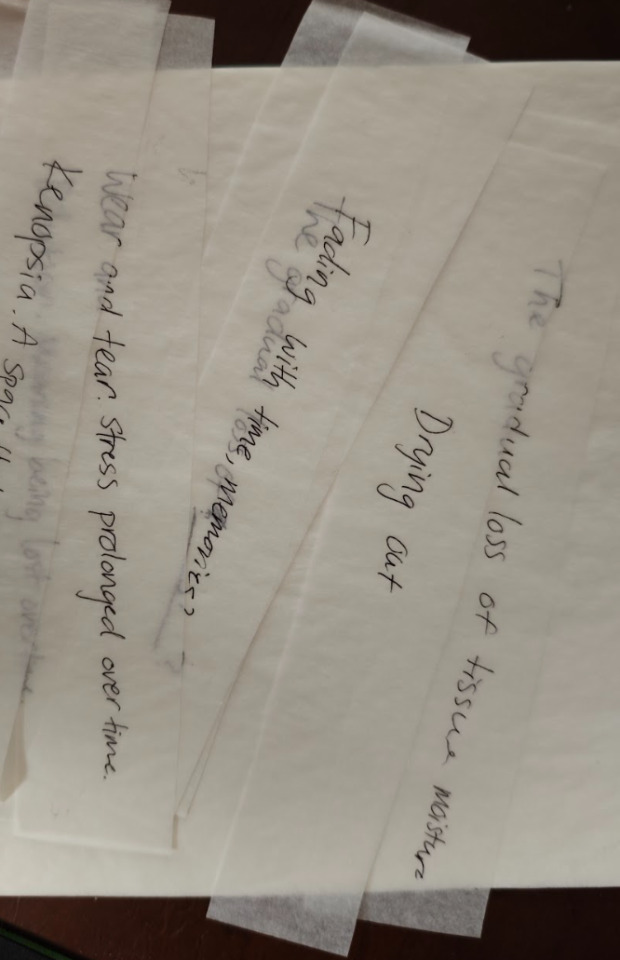 The gradual loss of tissue moisture
Drying out
Fading with time, memories??
The gradual loss
Wear and tear. Stress prolonged over time.
Kenopsia. A
being lost over time